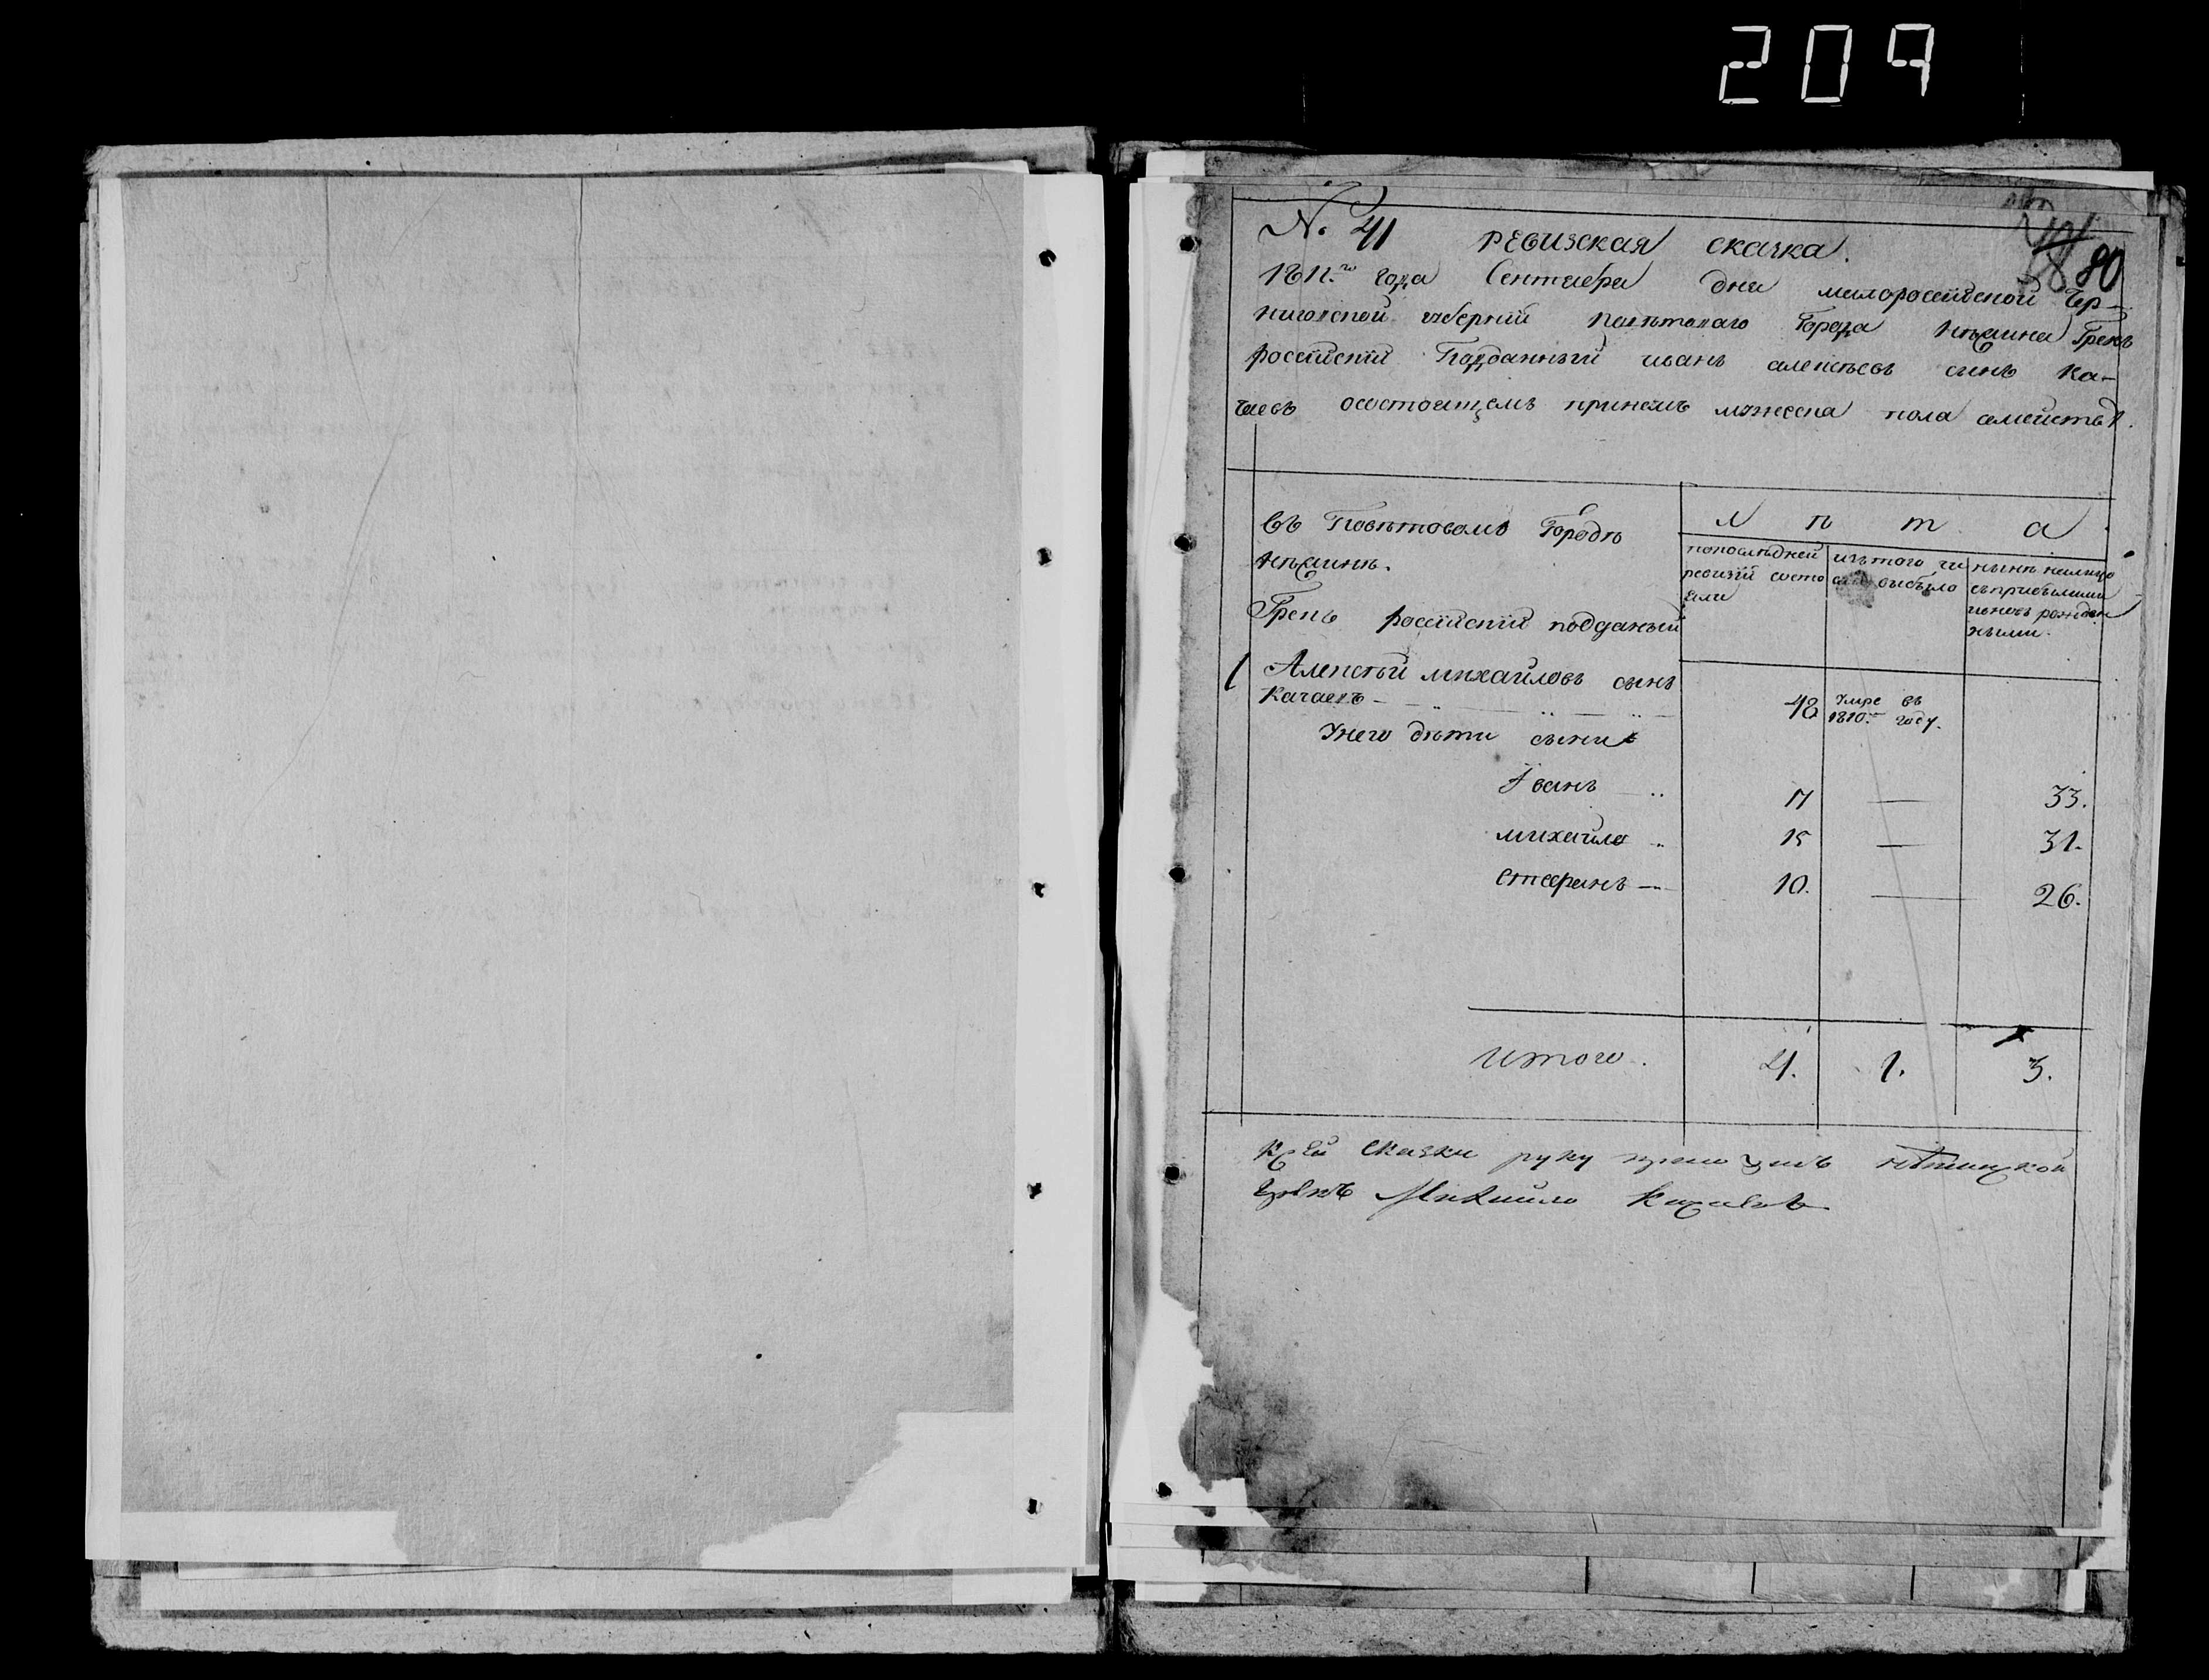 209
№ 41 Ревизская сказка.
80
1811.го года Сентября дня малороссійской Чер-
ниговской губерніи повѣтоваго Города Нѣжина Грекъ
россійскій Подданный иванъ алексѣевъ сынъ Ка-
чаевъ осостоящемъ принемъ мужеска пола семействѣ.
въ Повѣтовомъ Городѣ
Нѣжинѣ.
Л ѣ т а
попослѣдней ревизіи состо яли
изътого чи сла выбыло
нынѣ налицо съприбылыми ивновь рожден ными.
Грекъ россійскій подданый
1 Алексѣй михайловъ сынъ
Качаевъ - 48 Умре въ 1810.мъ году.
Унего дѣти сыни
Іванъ 17 — 33.
михайло 15 — 31.
Стефанъ — 10. — 26.
Итого. 4. 1. 3.
Ксей Сказки руку приложилъ нѣжинской
Грекъ Михайло Качаевъ